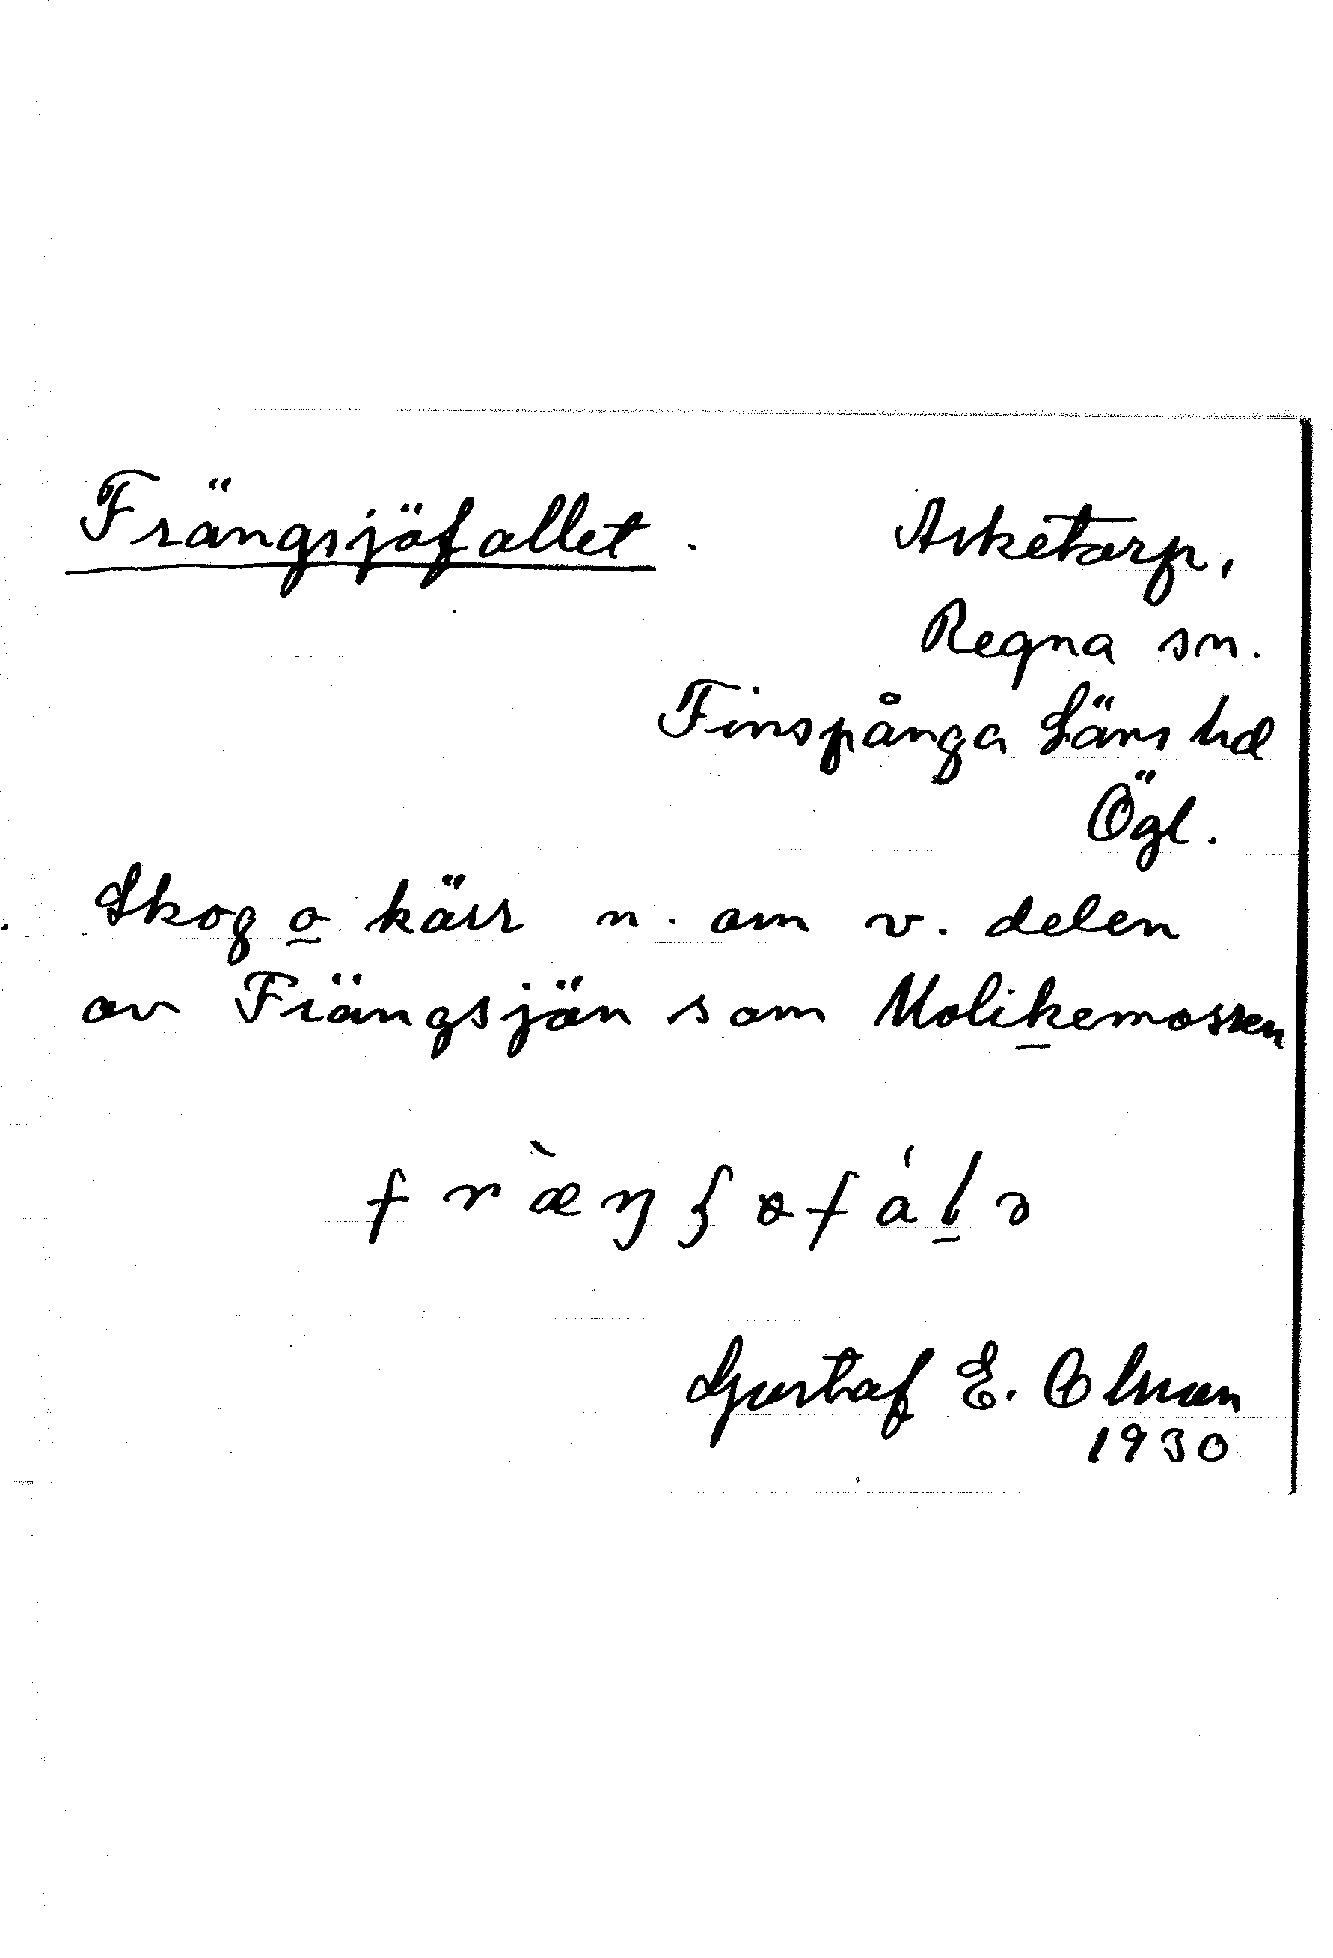 Frängsjöfallet. Asketorp,
Regna sn.
Finspånga Läns hd
Ögl.
Skog o kärr n. om v. delen
av Frängsjön som Molikemossen
fræ̀ŋʃofálə
Gustaf E. Olsson
1930